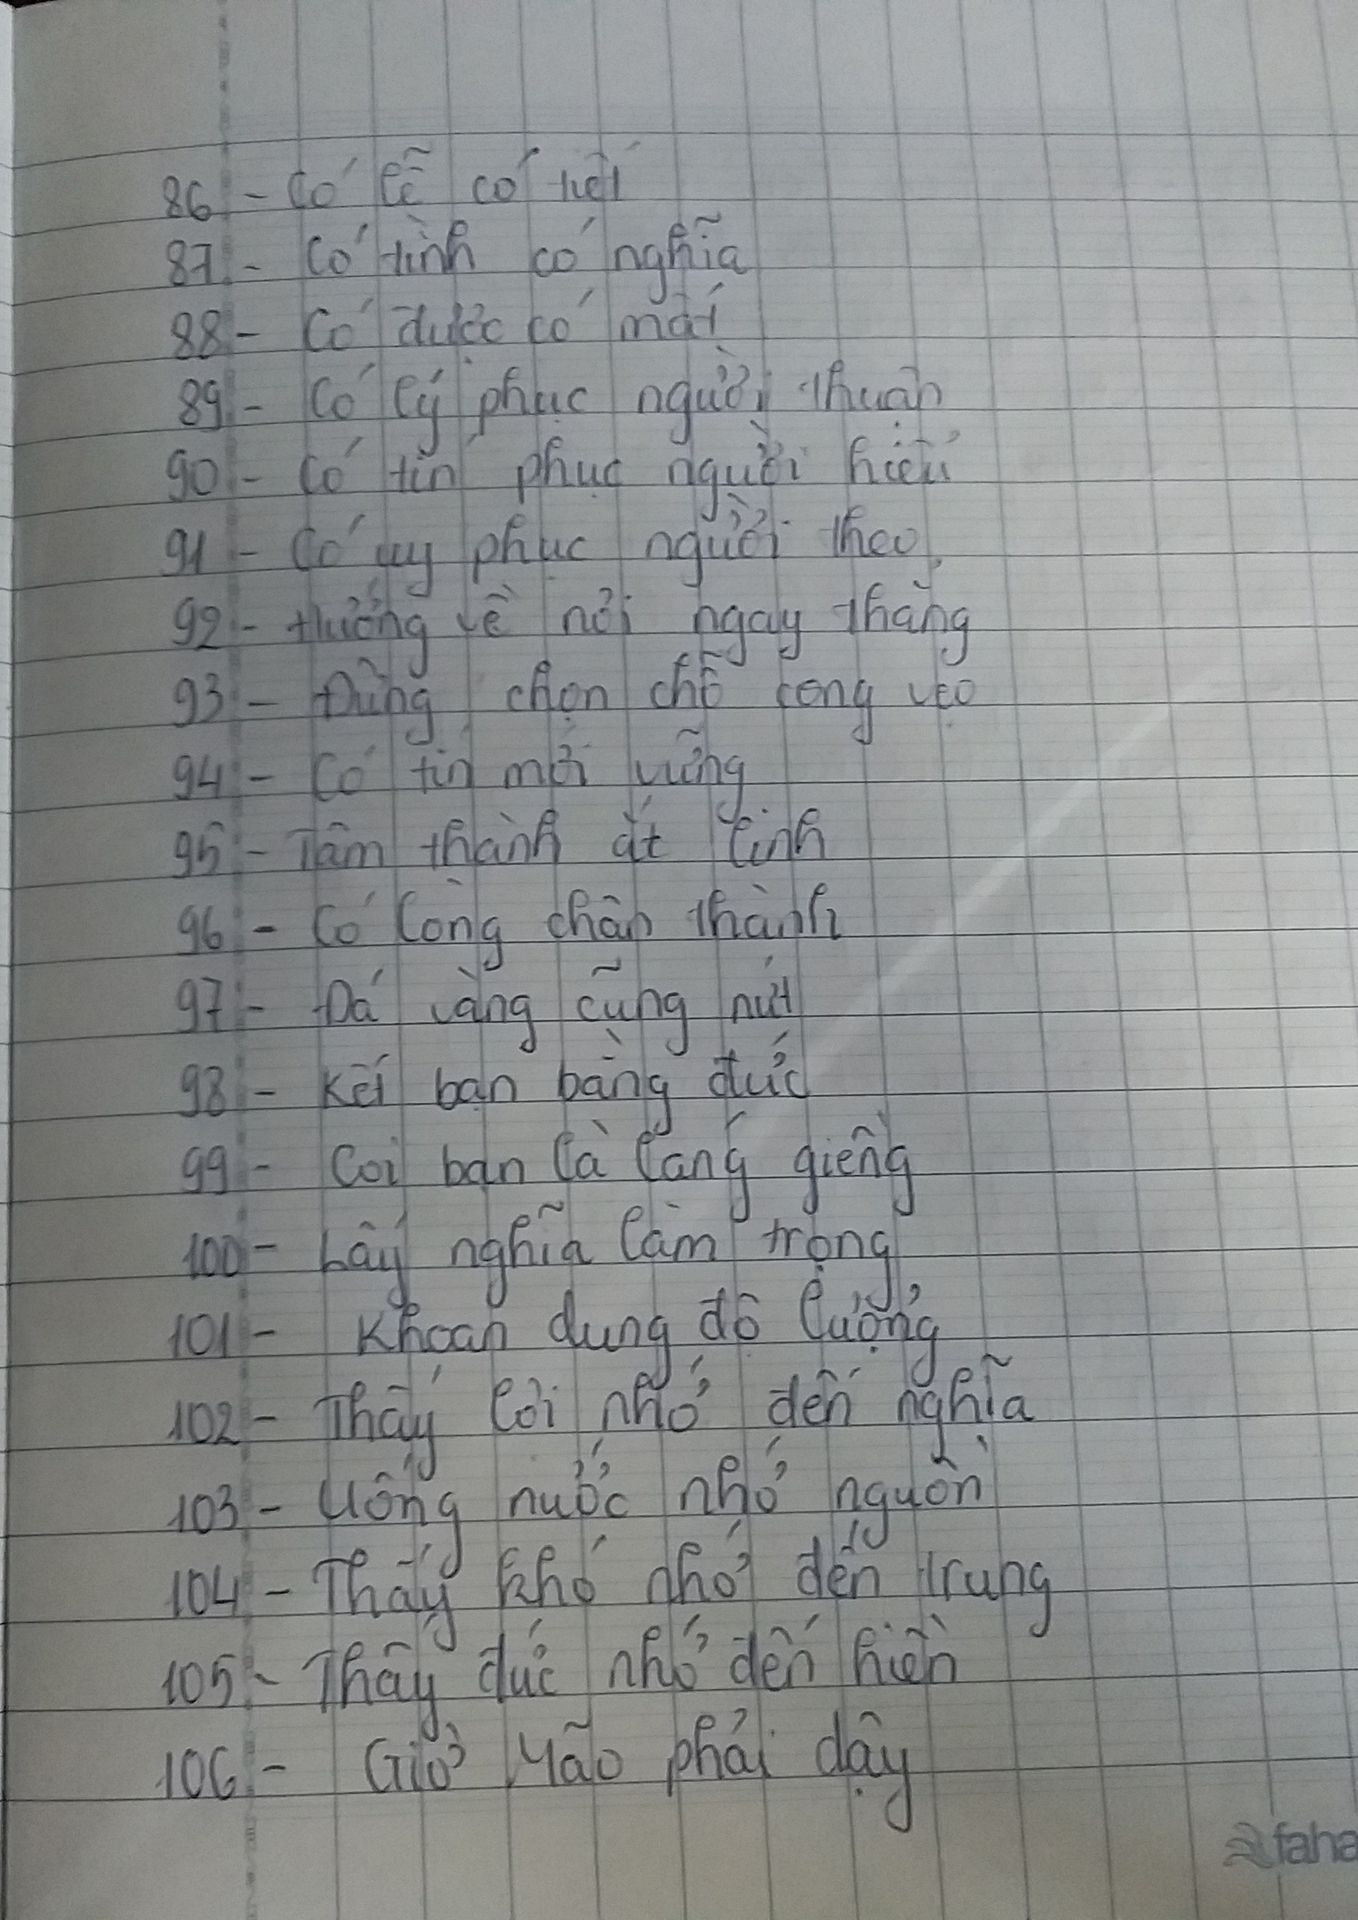 86 - Có lễ có hội
87 - Có tình có nghĩa
88 - Có được có mất
89 - Có lý phục người thuận
90 - Có tín phục người hiếu
91 - Có uy phục người theo
92 - Hướng về nơi ngay thẳng
93 - Đừng chọn chỗ cong vẹo
94 - Có tín mới vững
95 - Tâm thành ắt linh
96 - Có lòng chân thành
97 - Đá vàng cũng nứt
98 - Kết bạn bằng đức
99 - Coi bạn là láng giềng
100 - Lấy nghĩa làm trọng
101 - Khoan dung độ lượng
102 - Thấy lời nhớ đến nghĩa
103 - Uống nước nhớ nguồn
104 - Thấy khó nhớ đến trung
105 - Thấy đức nhớ đến hiền
106 - Giờ Mão phải dậy
faha